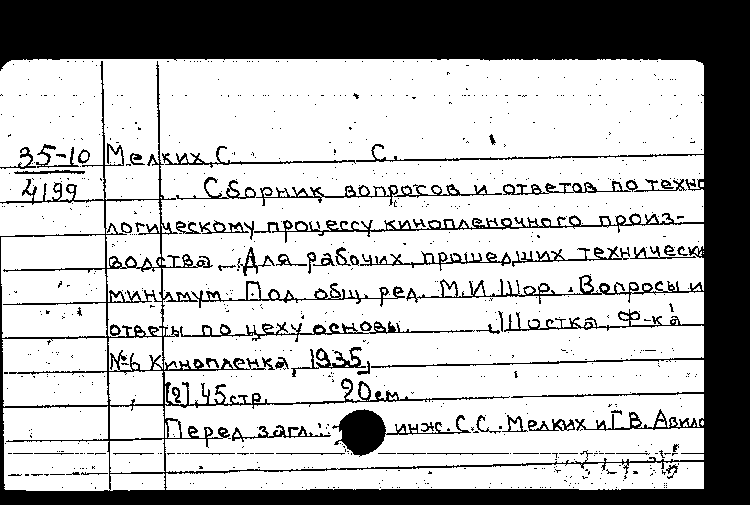 35-10 Мелких, С. С.
4199 Сборник вопросов и ответов по техно
логическому процессу кинопленочного произ-
водства. Для рабочих, прошедших технически
минимум. Под общ. ред. М.И. Шор. Вопросы и
ответы по цеху основы. Шостка, Ф-ка
№6 Кинопленка, 1935,
[2], 45 стр. 20 см.
Перед загл.: инж. С.С. Мелких и Г.В. Авило